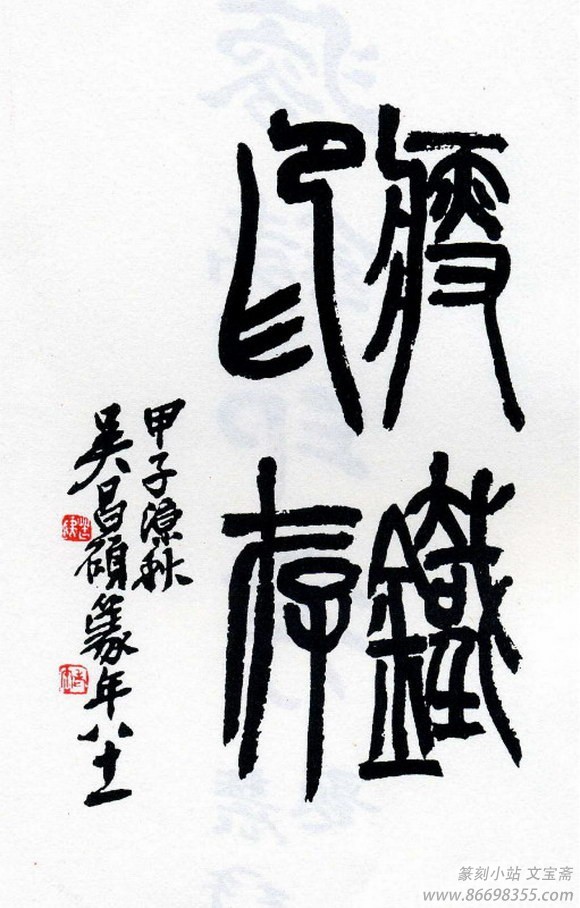 瘦鐵
印存
甲子涼秋
吳昌碩篆年八十一
篆刻小站 文宝斋
www.86698355.com